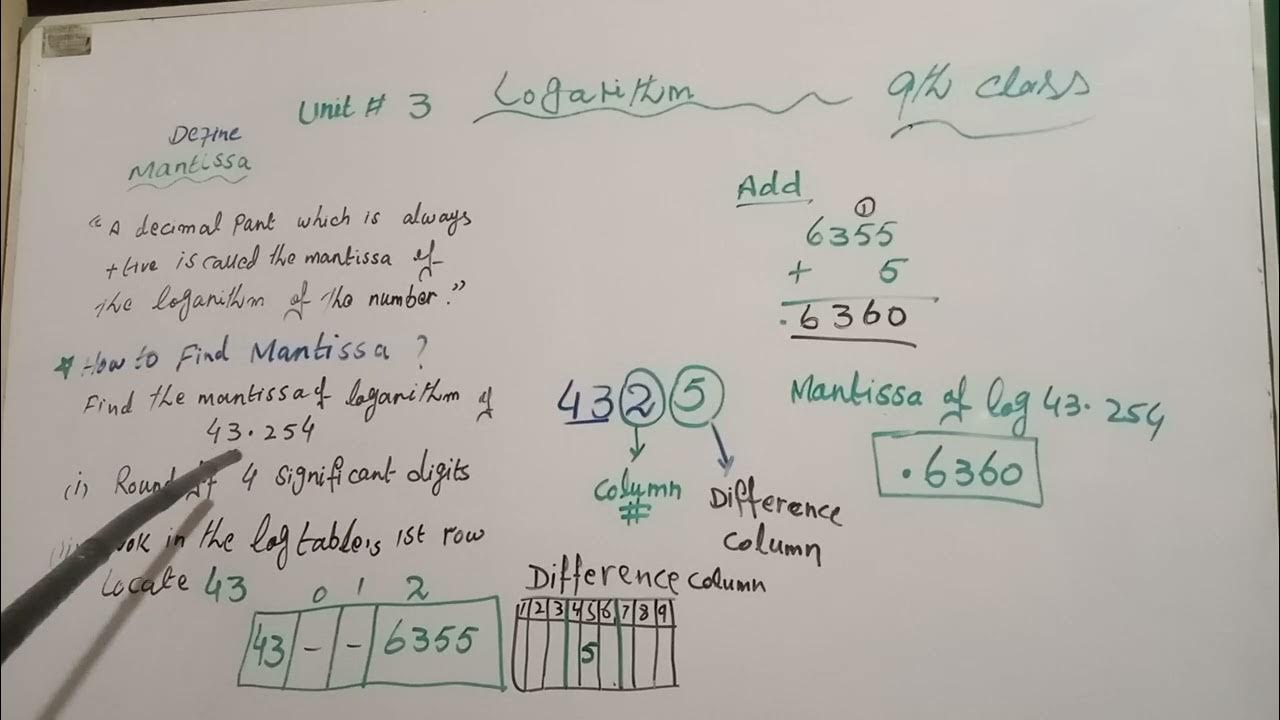 Unit # 3 Logarithm 9th class
Define
Mantissa
"A decimal part which is always
+tive is called the mantissa of
the logarithm of the number."
* How to Find Mantissa ?
Find the mantissa of logarithm of
43.254
(i) Round 4 significant digits
in the log table, 1st row
Locate 43
0 1 2
43 - - 6355
Difference column
1 2 3 4 5 6 7 8 9
5
4325
Column
#
Difference
column
Add
1
6355
+ 5
.6360
Mantissa of log 43.254
.6360